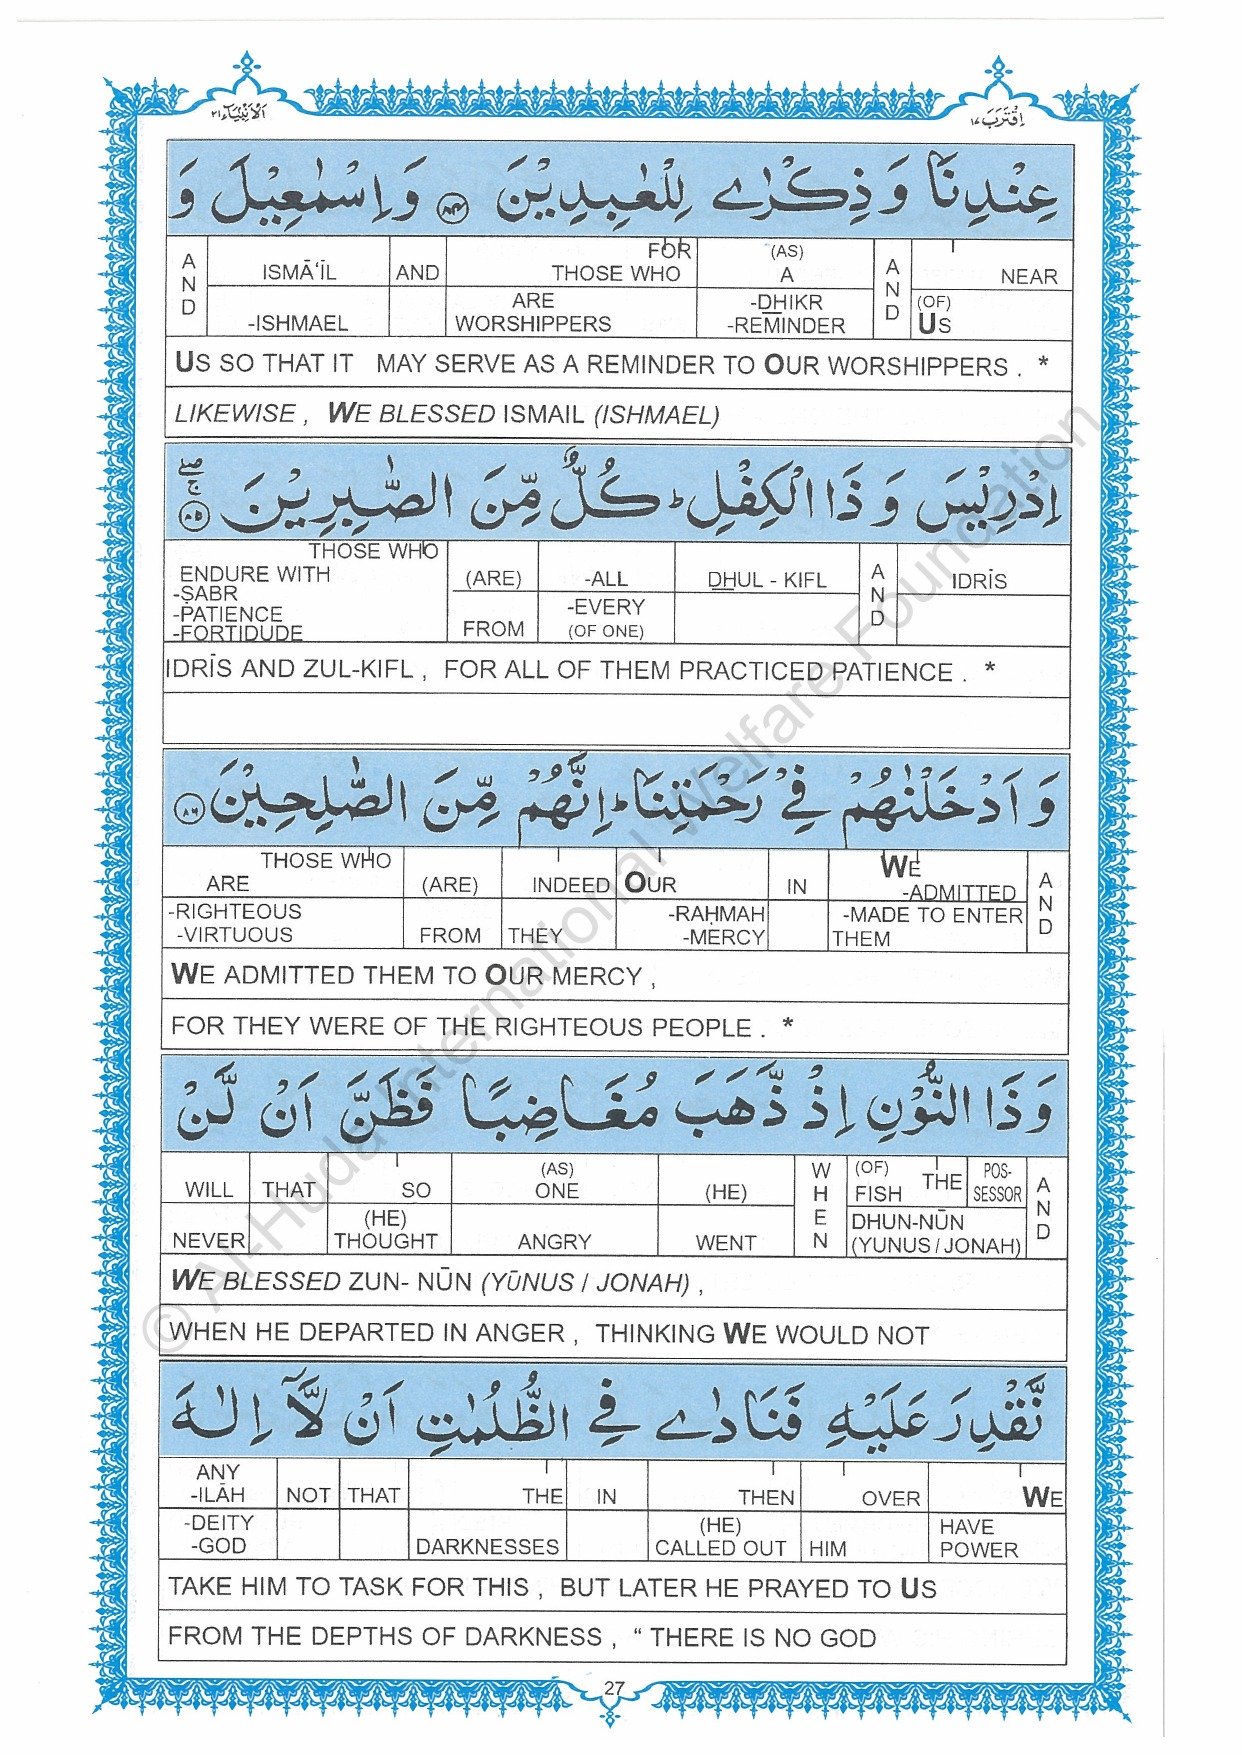 اَلْاَنْبِيَآء ٢١
اِقْتَرَبَ ١٧
عِنْدِنَا وَذِكْرٰى لِلْعٰبِدِيْنَ ﴿٨٤﴾ وَاِسْمٰعِيْلَ وَ
AND ISMĀ‘ĪL AND FOR THOSE WHO (AS) A AND NEAR
-ISHMAEL ARE WORSHIPPERS -DHIKR -REMINDER (OF) US
US SO THAT IT MAY SERVE AS A REMINDER TO OUR WORSHIPPERS . *
LIKEWISE , WE BLESSED ISMAIL (ISHMAEL)
اِدْرِيْسَ وَذَا الْكِفْلِ ؕ كُلٌّ مِّنَ الصّٰبِرِيْنَ ﴿٨٥﴾ ۚۖ
THOSE WHO ENDURE WITH -SABR -PATIENCE -FORTIDUDE (ARE) -ALL DHUL - KIFL AND IDRĪS
FROM -EVERY (OF ONE)
IDRĪS AND ZUL-KIFL , FOR ALL OF THEM PRACTICED PATIENCE . *
وَاَدْخَلْنٰهُمْ فِيْ رَحْمَتِنَا ؕ اِنَّهُمْ مِّنَ الصّٰلِحِيْنَ ﴿٨٦﴾
THOSE WHO ARE (ARE) INDEED OUR IN WE -ADMITTED AND
-RIGHTEOUS -VIRTUOUS FROM THEY -RAḤMAH -MERCY -MADE TO ENTER THEM
WE ADMITTED THEM TO OUR MERCY ,
FOR THEY WERE OF THE RIGHTEOUS PEOPLE . *
وَذَا النُّوْنِ اِذْ ذَّهَبَ مُغَاضِبًا فَظَنَّ اَنْ لَّنْ
WILL THAT SO (AS) ONE (HE) WHEN (OF) FISH THE POS-SESSOR AND
NEVER (HE) THOUGHT ANGRY WENT DHUN-NŪN (YUNUS / JONAH)
WE BLESSED ZUN- NŪN (YŪNUS / JONAH) ,
WHEN HE DEPARTED IN ANGER , THINKING WE WOULD NOT
نَّقْدِرَ عَلَيْهِ فَنَادٰى فِي الظُّلُمٰتِ اَنْ لَّآ اِلٰهَ
ANY -ILĀH NOT THAT THE IN THEN OVER WE
-DEITY -GOD DARKNESSES (HE) CALLED OUT HIM HAVE POWER
TAKE HIM TO TASK FOR THIS , BUT LATER HE PRAYED TO US
FROM THE DEPTHS OF DARKNESS , “ THERE IS NO GOD
27
© Al-Huda International Welfare Foundation